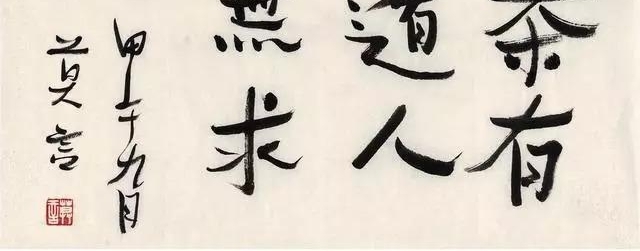 茶有
道人
無求
甲午九月
莫言
莫言